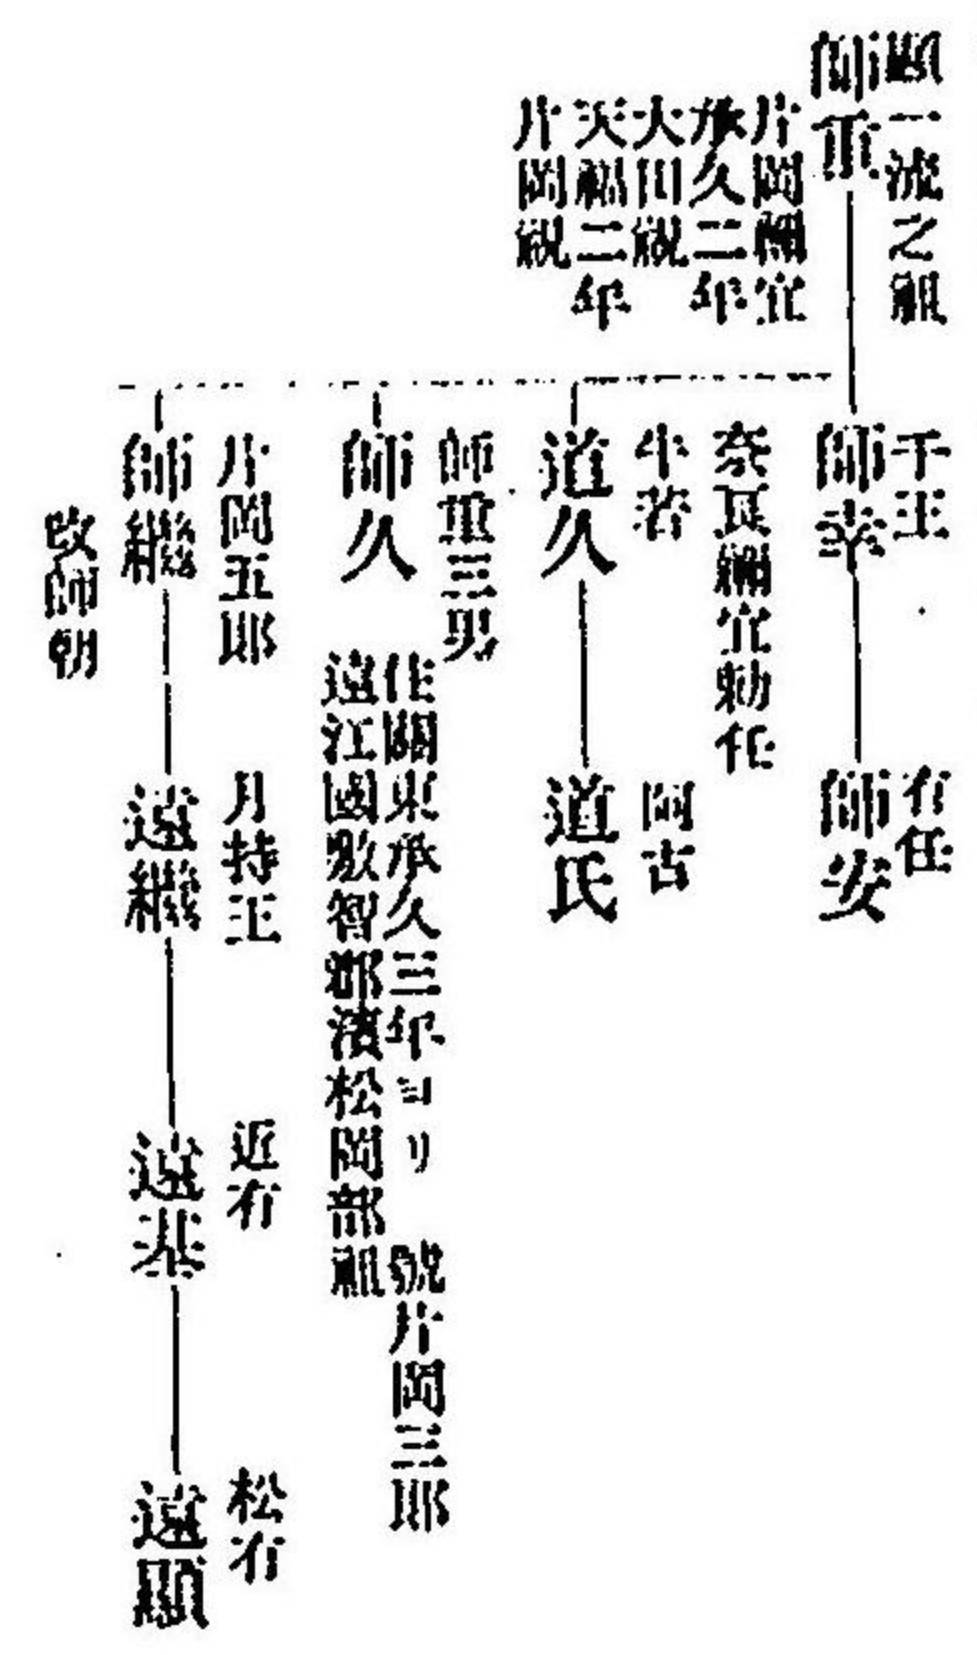 顯一流之祖
師重
片岡禰宜
承久二年
大田祝
天福二年
片岡祝
千王
師幸
有任
師安
奈良禰宜勅任
牛若
道久
阿古
道氏
師重三男
師久
住關東承久三年ヨリ 號片岡三郎
遠江國敷智郡濱松岡部祖
片岡五郎
師繼
改師朝
月持王
遠繼
近有
遠基
松有
遠顯